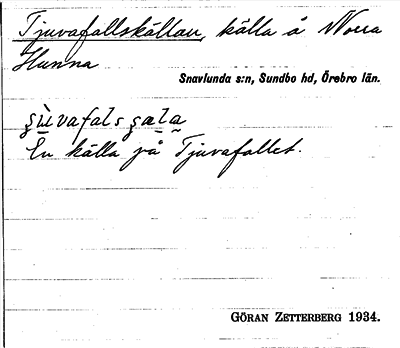 Tjuvafallskällan, källa å Norra
Hunna
Snavlunda s:n, Sundbo hd, Örebro län.
ʂùvafalsʂæla
En källa på Tjuvafallet.
GÖRAN ZETTERBERG 1934.